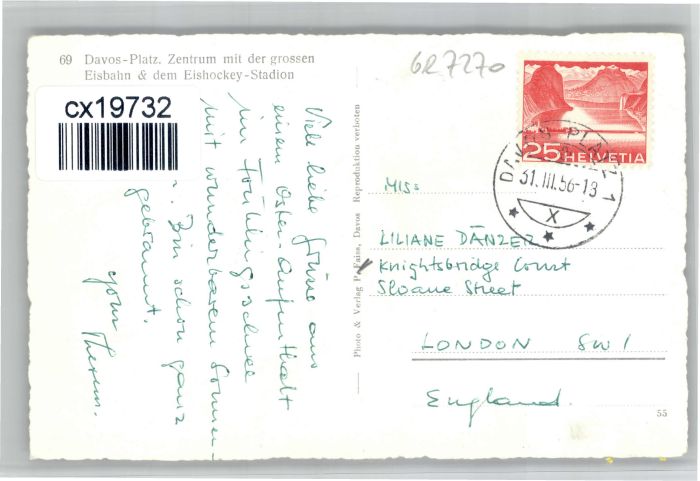 69 Davos-Platz. Zentrum mit der grossen
Eisbahn & dem Eishockey-Stadion
GR 7270
cx19732
Viele liebe Grüsse aus
einem Oster-Aufenthalt
im Frühlingsschnee
mit wunderbarem Sonnen-
. Bin schon ganz
gebrannt.
your
Photo & Verlag P. Faiss, Davos Reproduktion verboten
25 HELVETIA
DAVOS PLATZ 1
31.III.56-13
X
MISS
LILIANE DÄNZER
Knightsbridge Court
Sloane Street
LONDON SW1
England.
55